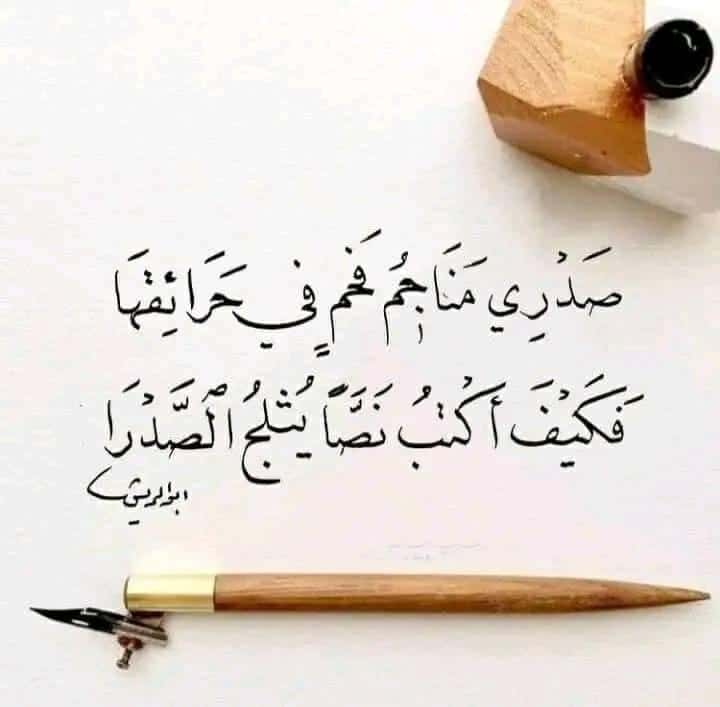 صَدْرِي مَنَاجِمُ فَحْمٍ فِي حَرَائِقِهَا
فَكَيْفَ أَكْتبُ نَصًّا يُثْلِجُ ٱلصَّدْرَا
ابوالريش